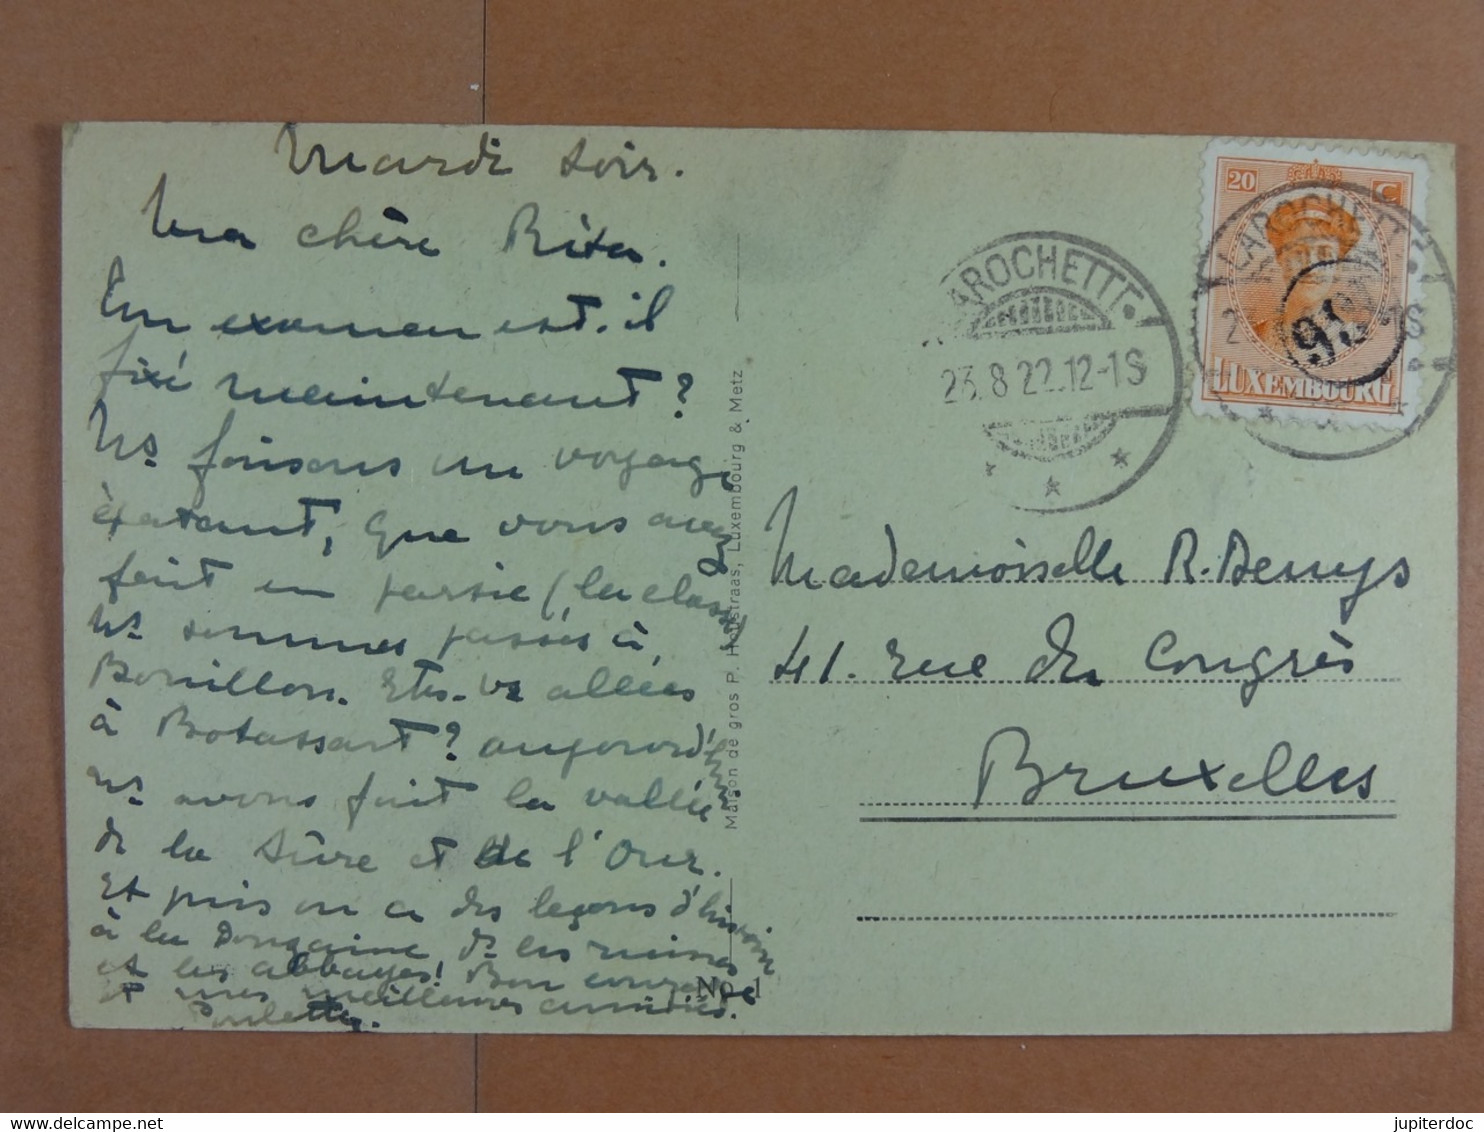 Mardi soir.
Ma chère Rita.
Ton examen est-il
fixé maintenant?
Ns faisons un voyage
épatant, que vous avez
fait en partie (la classe)
Ns sommes passés à
Bouillon. Etes-vs allées
à Botassart? aujourd'hui
ns avons fait la vallée
de la Sûre et de l'Our.
Et puis on a des leçons d'histoire
à la douzaine de les ruines
et les abbayes! Bon courage
et mes meilleures amitiés.
Paulette.
Maison de gros P. Houstraas, Luxembourg & Metz
No. 1
LAROCHETTE
23.8.22.12-1S
20 C
LUXEMBOURG
LAROCHETTE
91
Mademoiselle R. Denys
41. rue du Congrès
Bruxelles
www.delcampe.net
jupiterdoc